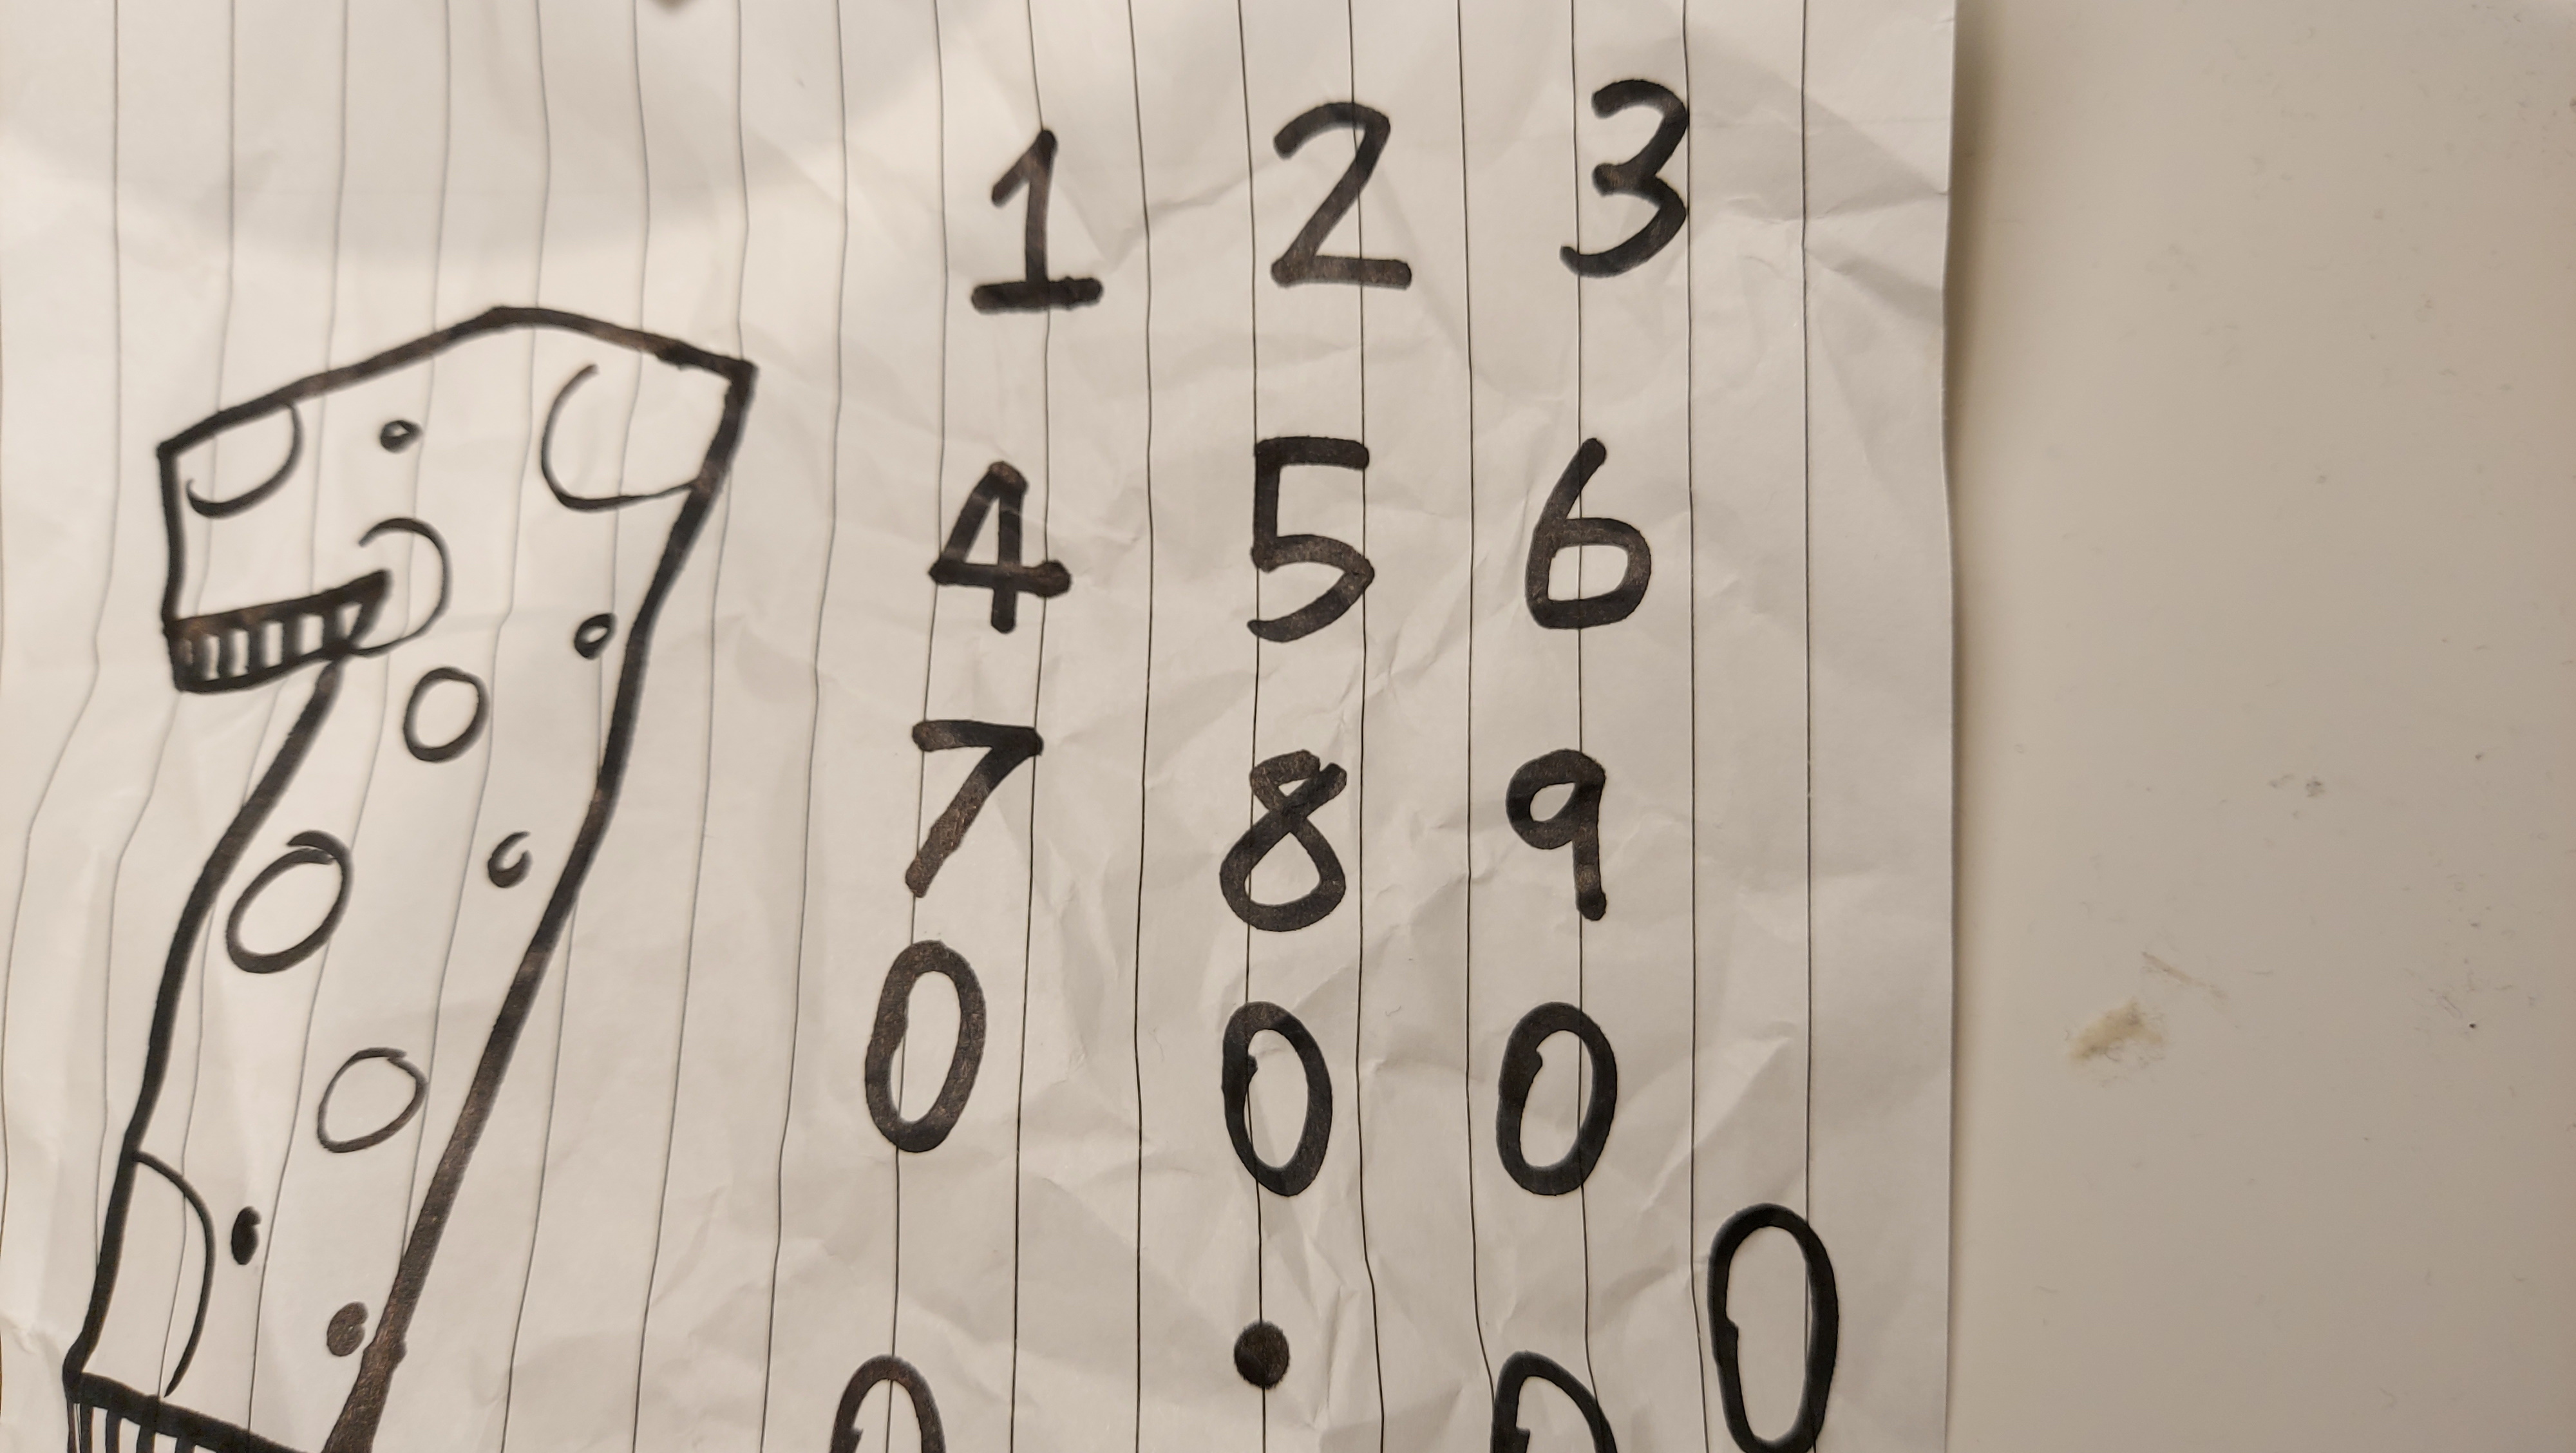 1 2 3
4 5 6
7 8 9
0 0 0
0 . 0 0